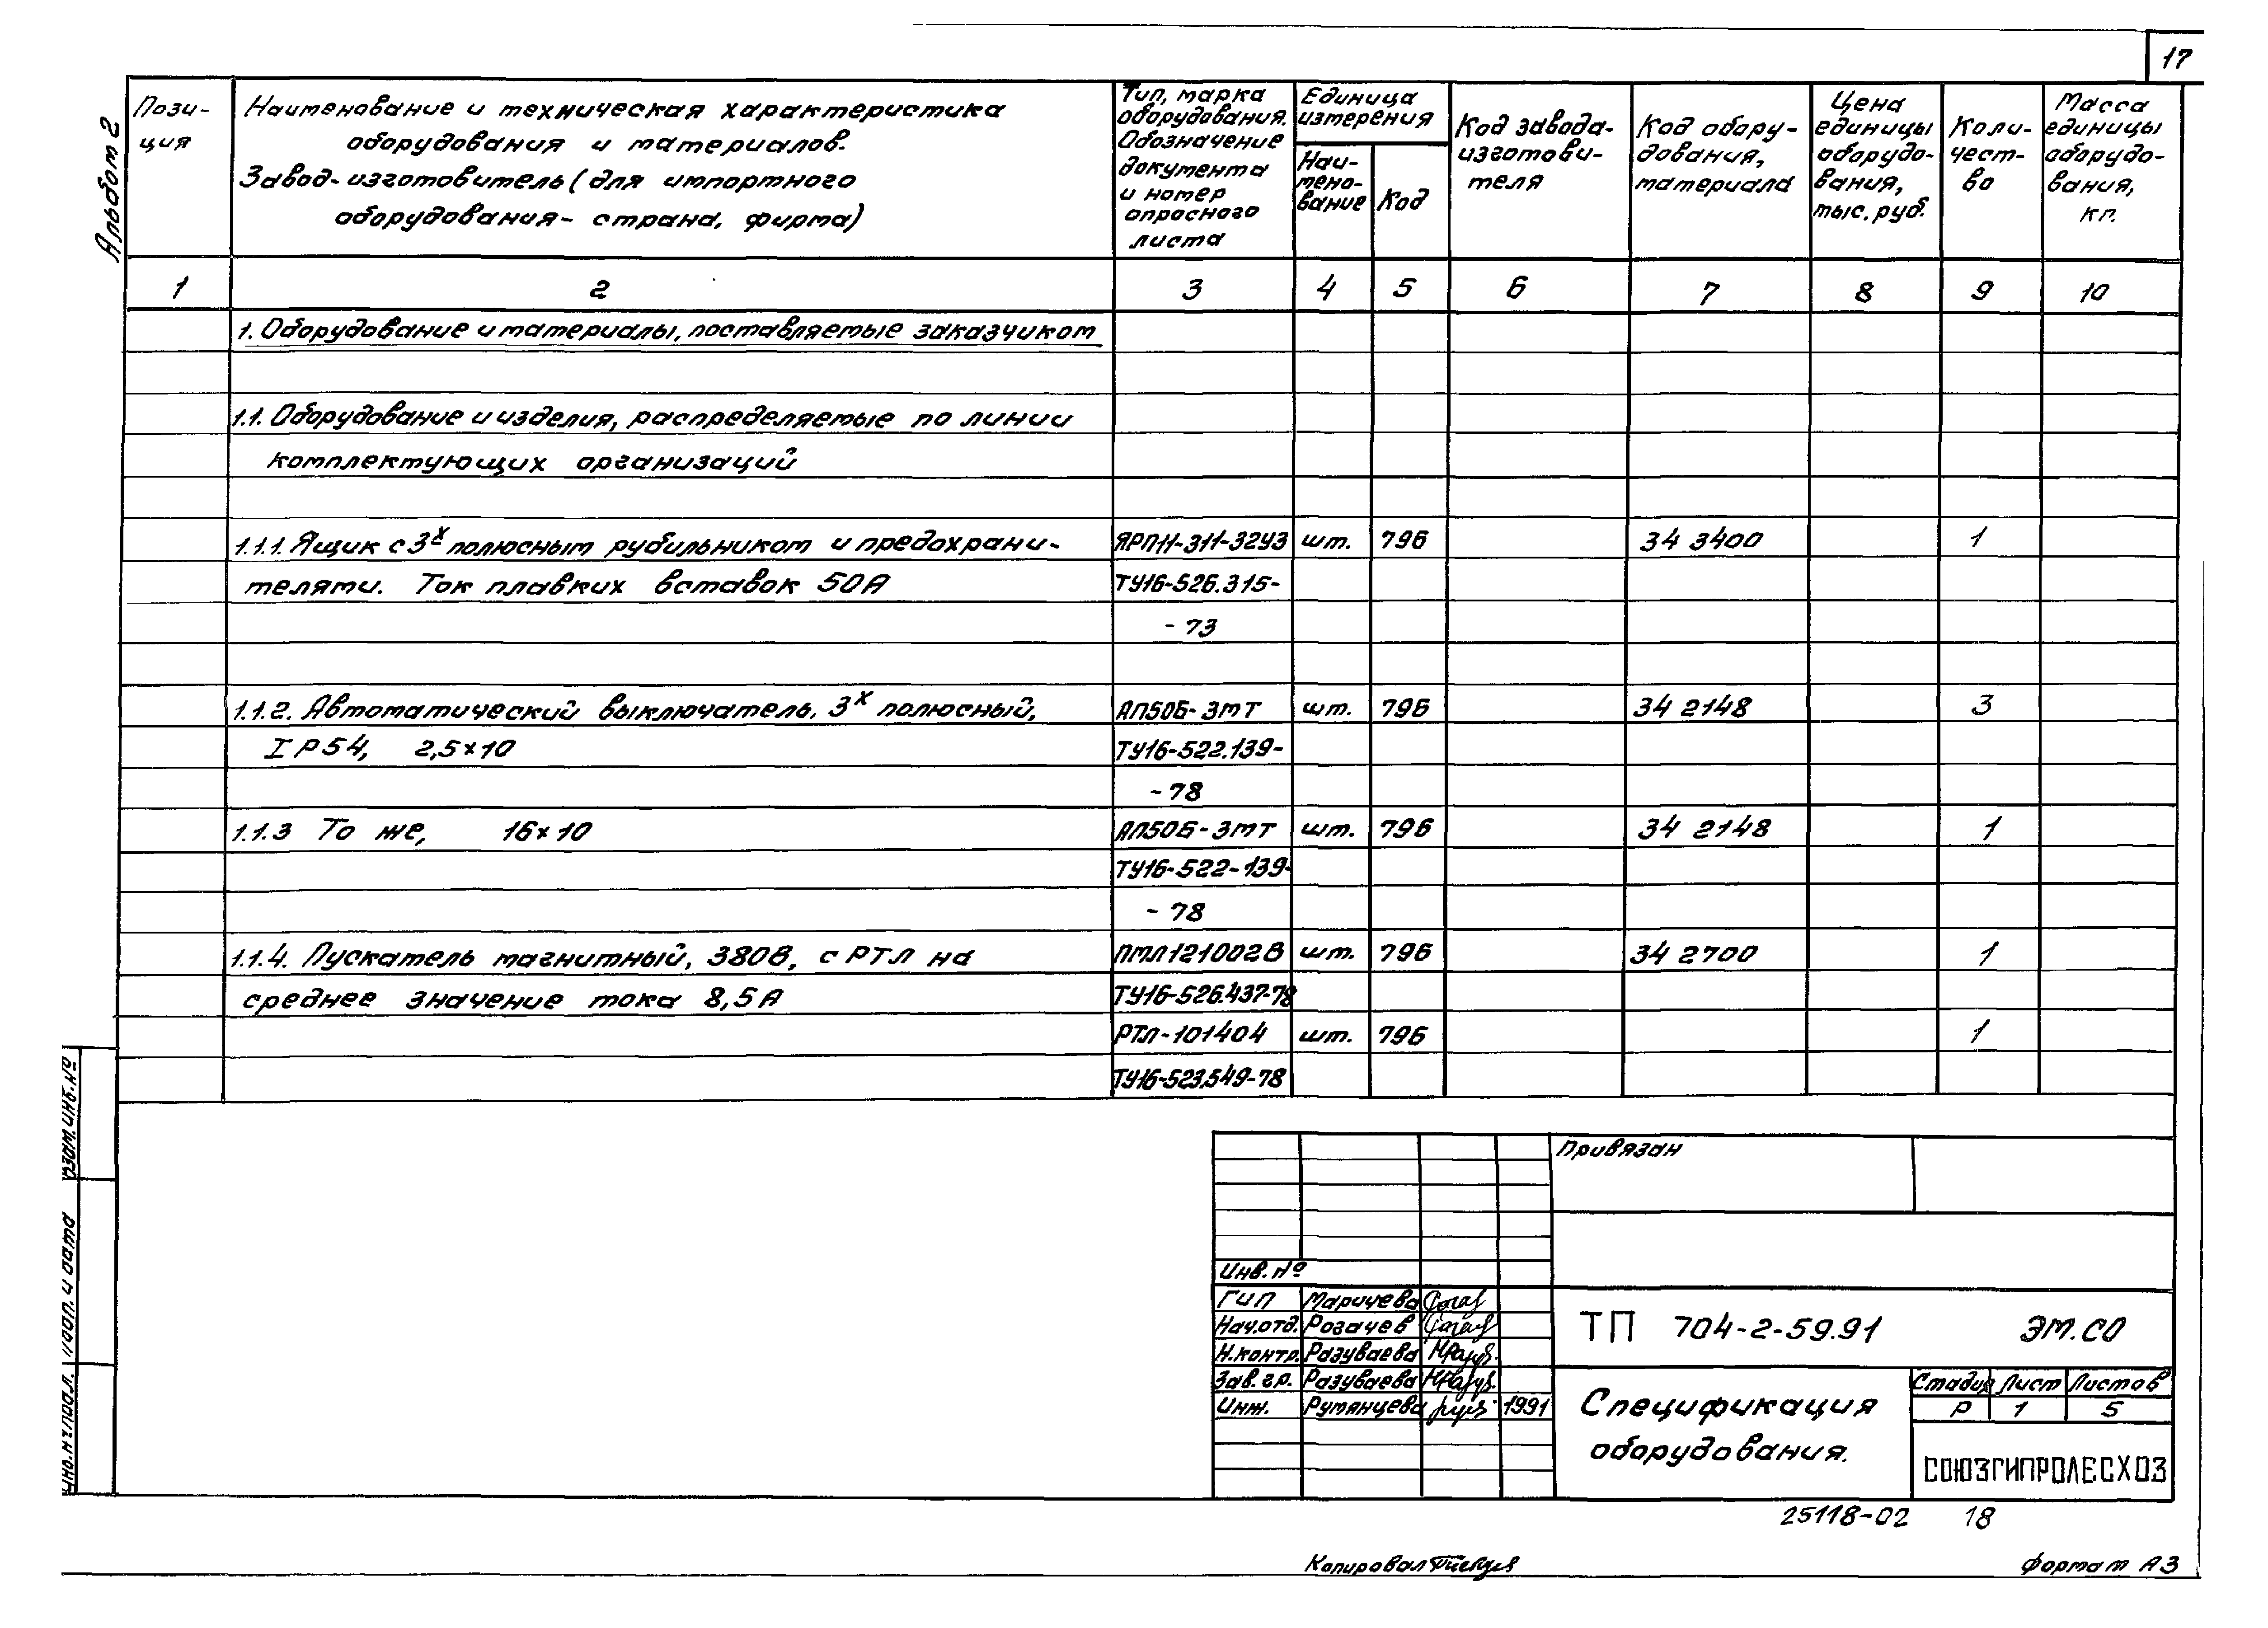 17
Альбом 2
Пози-
ция
Наименование и техническая характеристика
оборудования и материалов.
Завод-изготовитель (для импортного
оборудования- страна, фирма)
Тип, марка
оборудования.
Обозначение
документа
и номер
опросного
листа
Единица
измерения
Наи-
мено-
вание
Код
Код завода-
изготови-
теля
Код обору-
дования,
материала
Цена
единицы
оборудо-
вания,
тыс. руб.
Коли-
чест-
во
Масса
единицы
оборудо-
вания,
кг.
1 2 3 4 5 6 7 8 9 10
1. Оборудование и материалы, поставляемые заказчиком
1.1. Оборудование и изделия, распределяемые по линии
комплектующих организаций
1.1.1 Ящик с 3х полюсным рубильником и предохрани- ЯРП11-311-32У3 шт. 796 34 3400 1
телями. Ток плавких вставок 50А ТУ16-526.315-
- 73
1.1.2. Автоматический выключатель. 3х полюсный, АП50Б-3МТ шт. 796 34 2148 3
IP54, 2,5×10 ТУ16-522.139-
- 78
1.1.3 То же, 16×10 АП50Б-3МТ шт. 796 34 2148 1
ТУ16-522-139-
- 78
1.1.4. Пускатель магнитный, 380В, с РТЛ на ПМЛ121002В шт. 796 34 2700 1
среднее значение тока 8,5А ТУ16-526.437-78
РТЛ-101404 шт. 796 1
ТУ16-523.549-78
Взам. инв. №
Подп. и дата
Инв. № подл.
Привязан
Инв. №
ГИП Маричева
Нач.отд. Розачев
Н.контр. Разуваева
Зав.гр. Разуваева
Инж. Румянцева 1991
ТП 704-2-59.91 ЭМ.СО
Спецификация
оборудования.
Стадия Лист Листов
Р 1 5
СОЮЗГИПРОЛЕСХОЗ
25118-02 18
Копировал
Формат А3